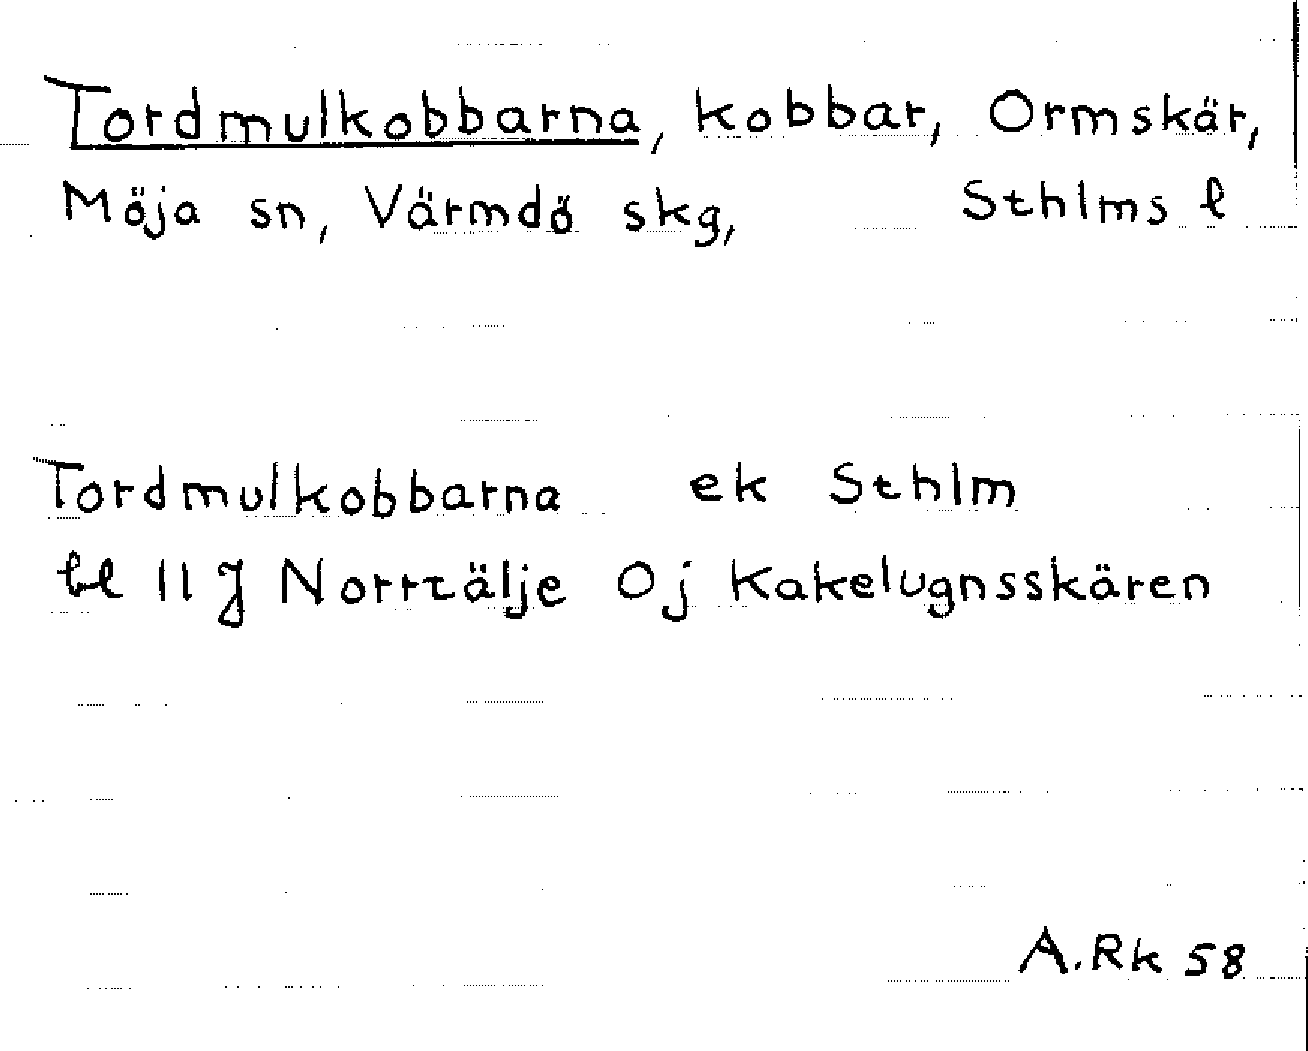 Tordmulkobbarna, kobbar, Ormskär,
Möja sn, Värmdö skg, Sthlms l
Tordmulkobbarna ek Sthlm
bl 11 J Norrtälje 0j Kakelugnsskären
A.Rk 58